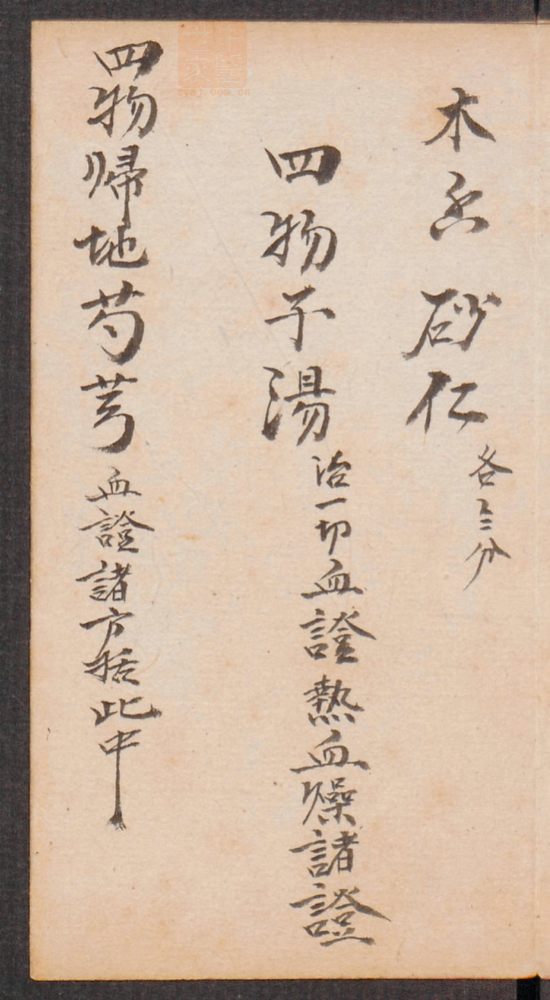 木香 砂仁 各三分
四物子湯 治一切血證熱血燥諸證
四物帰地芍芎 血證諸方括此中